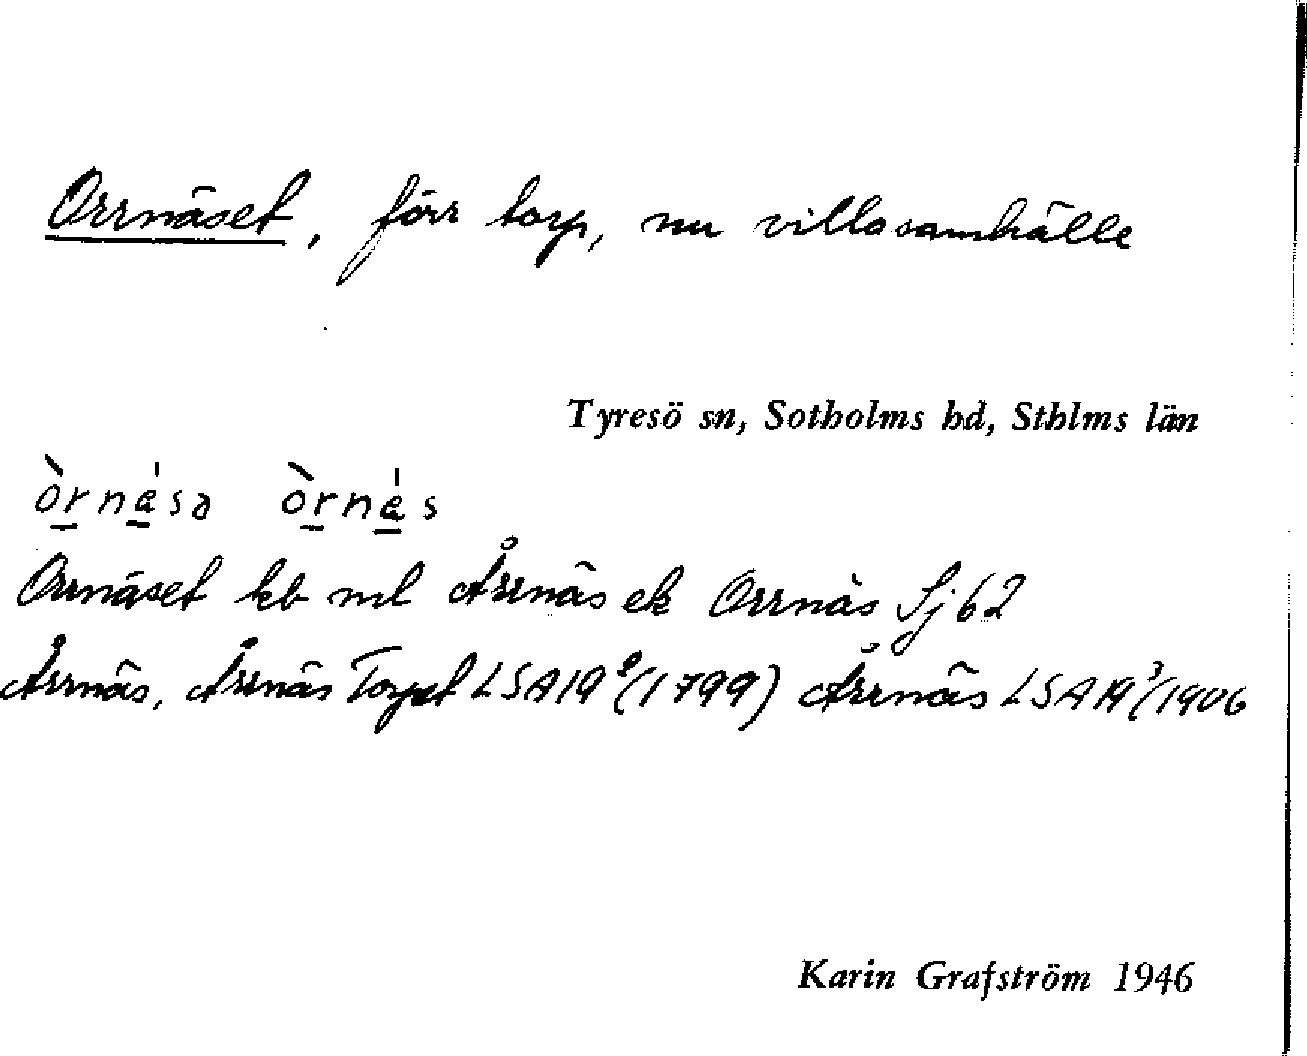 Orrnäset, förr torp, nu villasamhälle
Tyresö sn, Sotholms hd, Sthlms län
òrnésə òrnés
Orrnäset kb ml Årrnäs ek Orrnäs Sj 62
Årrnäs, Årrnäs Torpet LSA 19 (1799) Årrnäs LSA 19³ (1906
Karin Grafström 1946